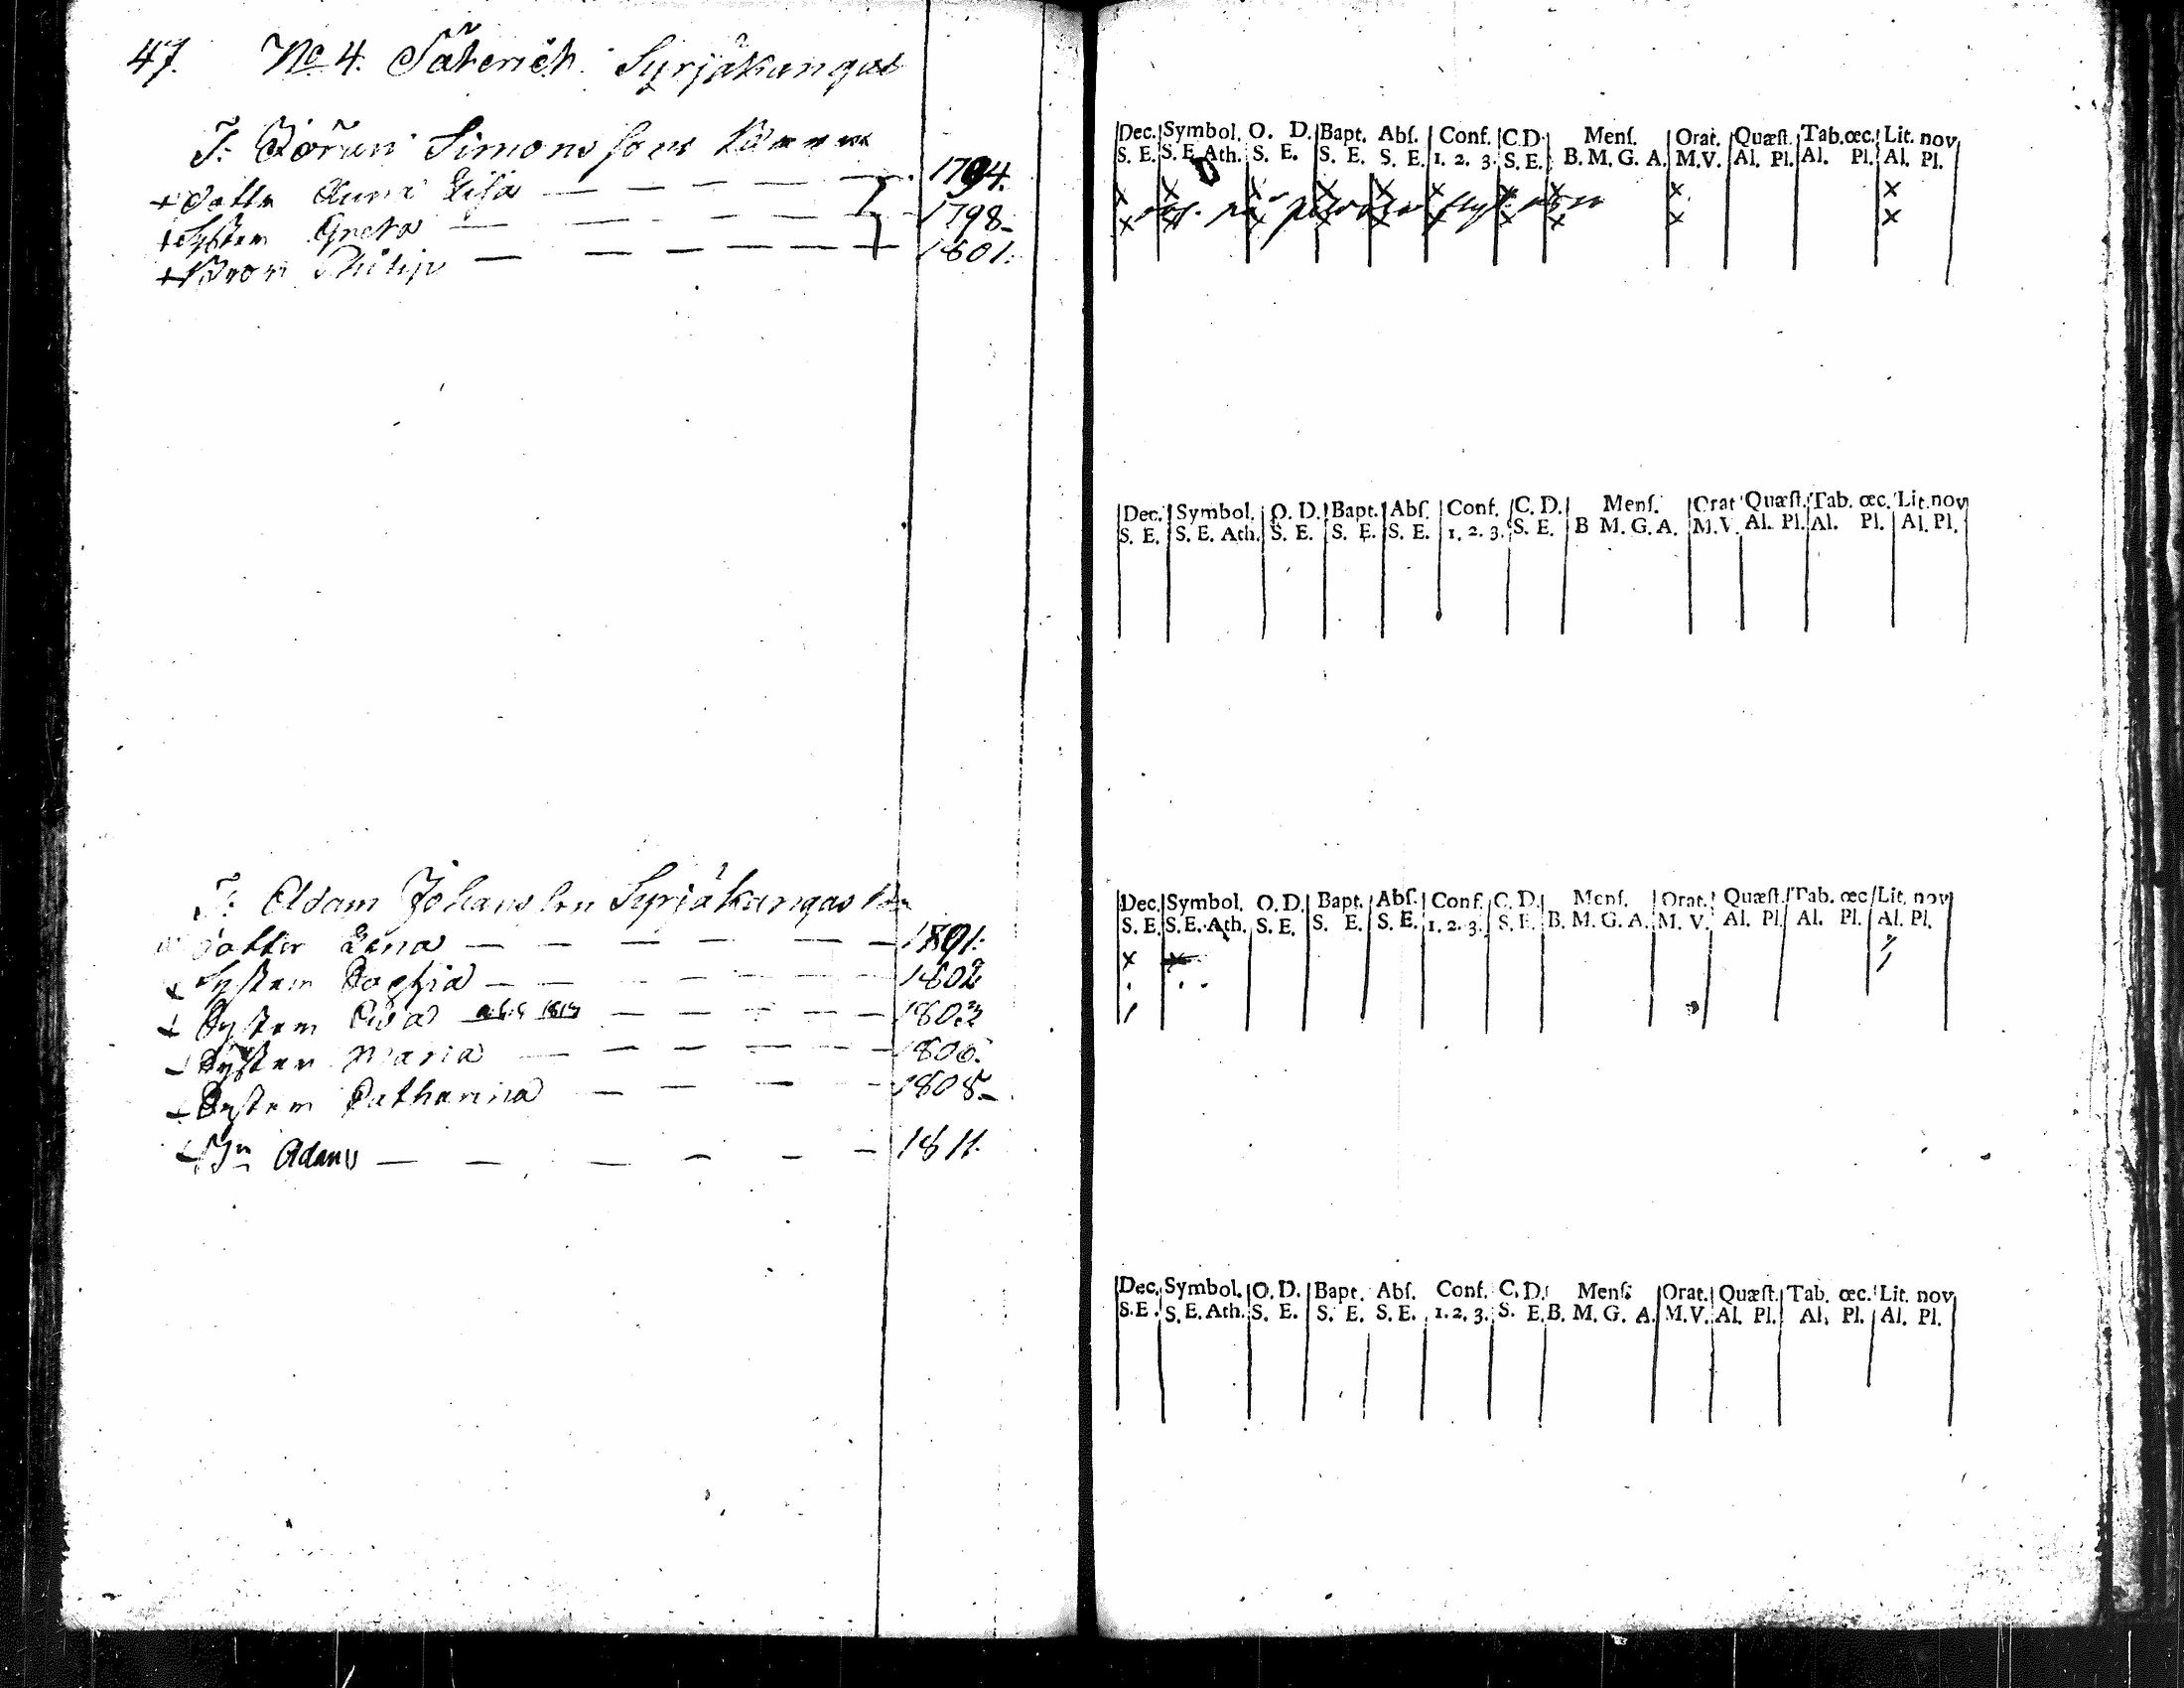 47. No 4. Säterich Syrjäkangas
F: Göran Simonssons Barn
+ Dotter Anna Lisa — — — — 1794.
+ Syster Greta — — — — 1798-
+ Bror Philip — — — — — — 1801.
F: Adam Johansson Syrjäkangas Bn
Dotter Lena — — — — — 1801.
+ Syster Sophia — — — — — 1802
+ Syster Eva — — — — 1803
+ Syster Maria — — — — — 1806.
+ Syster Catharina — — — — 1808-
+ Bn Adam — — — — — — 1811.
Dec. Symbol. O. D. Bapt. Abſ. Conf. C.D. Menſ. Orat. Quæſt. Tab. œc. Lit. nov
S. E. S. E. Ath. S. E. S. E. S. E. 1. 2. 3. S. E. B. M. G. A. M.V. Al. Pl. Al. Pl. Al. Pl.
x x x x x x x x x x
x x x x x x x x x x
Dec. Symbol. O. D. Bapt. Abſ. Conf. C. D. Menſ. Orat Quæſt. Tab. œc. Lit. nov
S. E. S. E. Ath. S. E. S. E. S. E. 1. 2. 3. S. E. B M. G. A. M.V. Al. Pl. Al. Pl. Al. Pl.
Dec. Symbol. O. D. Bapt. Abſ. Conf. C. D. Menſ. Orat. Quæſt. Tab. œc Lit. nov
S. E. S. E. Ath. S. E. S. E. S. E. 1. 2. 3. S. E. B. M. G. A. M. V. Al. Pl. Al. Pl. Al. Pl.
x x
Dec. Symbol. O. D. Bapt. Abſ. Conf. C. D. Menſ. Orat. Quæſt. Tab. œc. Lit. nov
S. E. S. E. Ath. S. E. S. E. S. E. 1. 2. 3. S. E. B. M. G. A. M.V. Al. Pl. Al. Pl. Al. Pl.